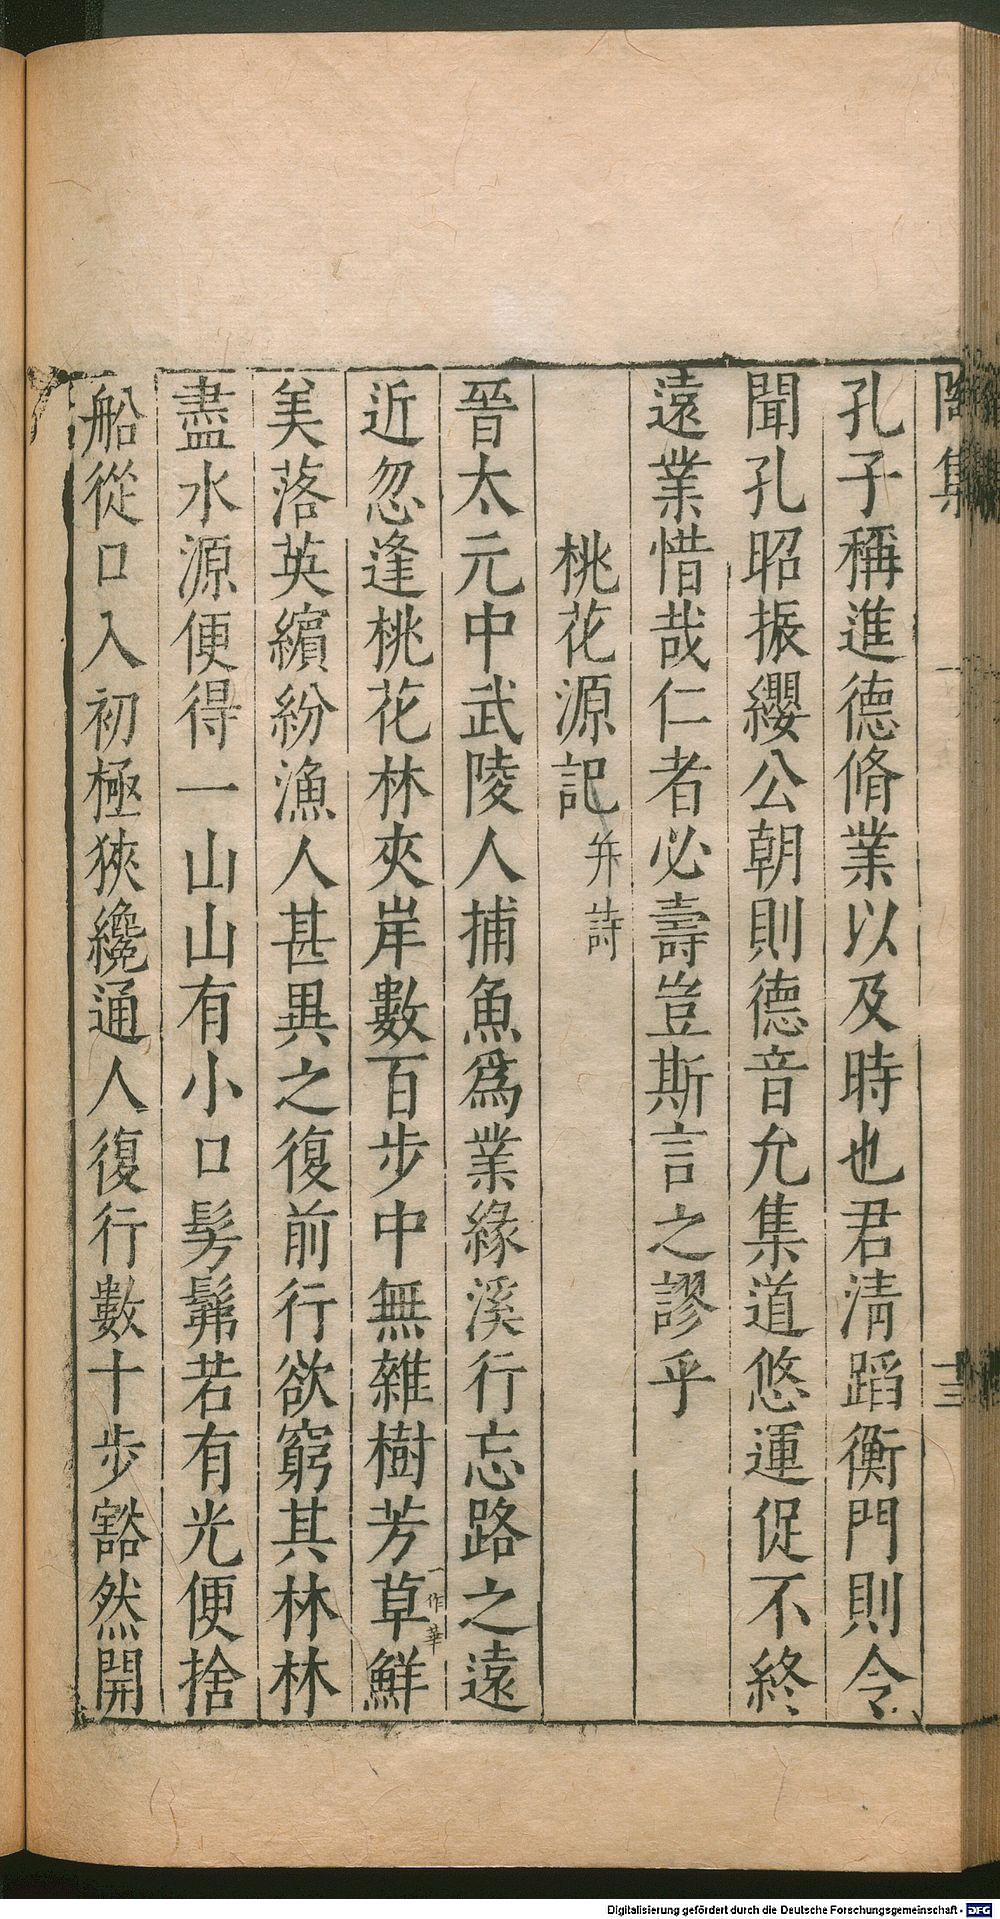 陶集
十三
孔子稱進德脩業以及時也君清蹈衡門則令
聞孔昭振纓公朝則德音允集道悠運促不終
遠業惜哉仁者必壽豈斯言之謬乎
桃花源記并詩
晉太元中武陵人捕魚爲業緣溪行忘路之遠
近忽逢桃花林夾岸數百步中無雜樹芳草鮮
一作華
美落英繽紛漁人甚異之復前行欲窮其林林
盡水源便得一山山有小口髣髴若有光便捨
船從口入初極狹纔通人復行數十步豁然開
Digitalisierung gefördert durch die Deutsche Forschungsgemeinschaft - DFG